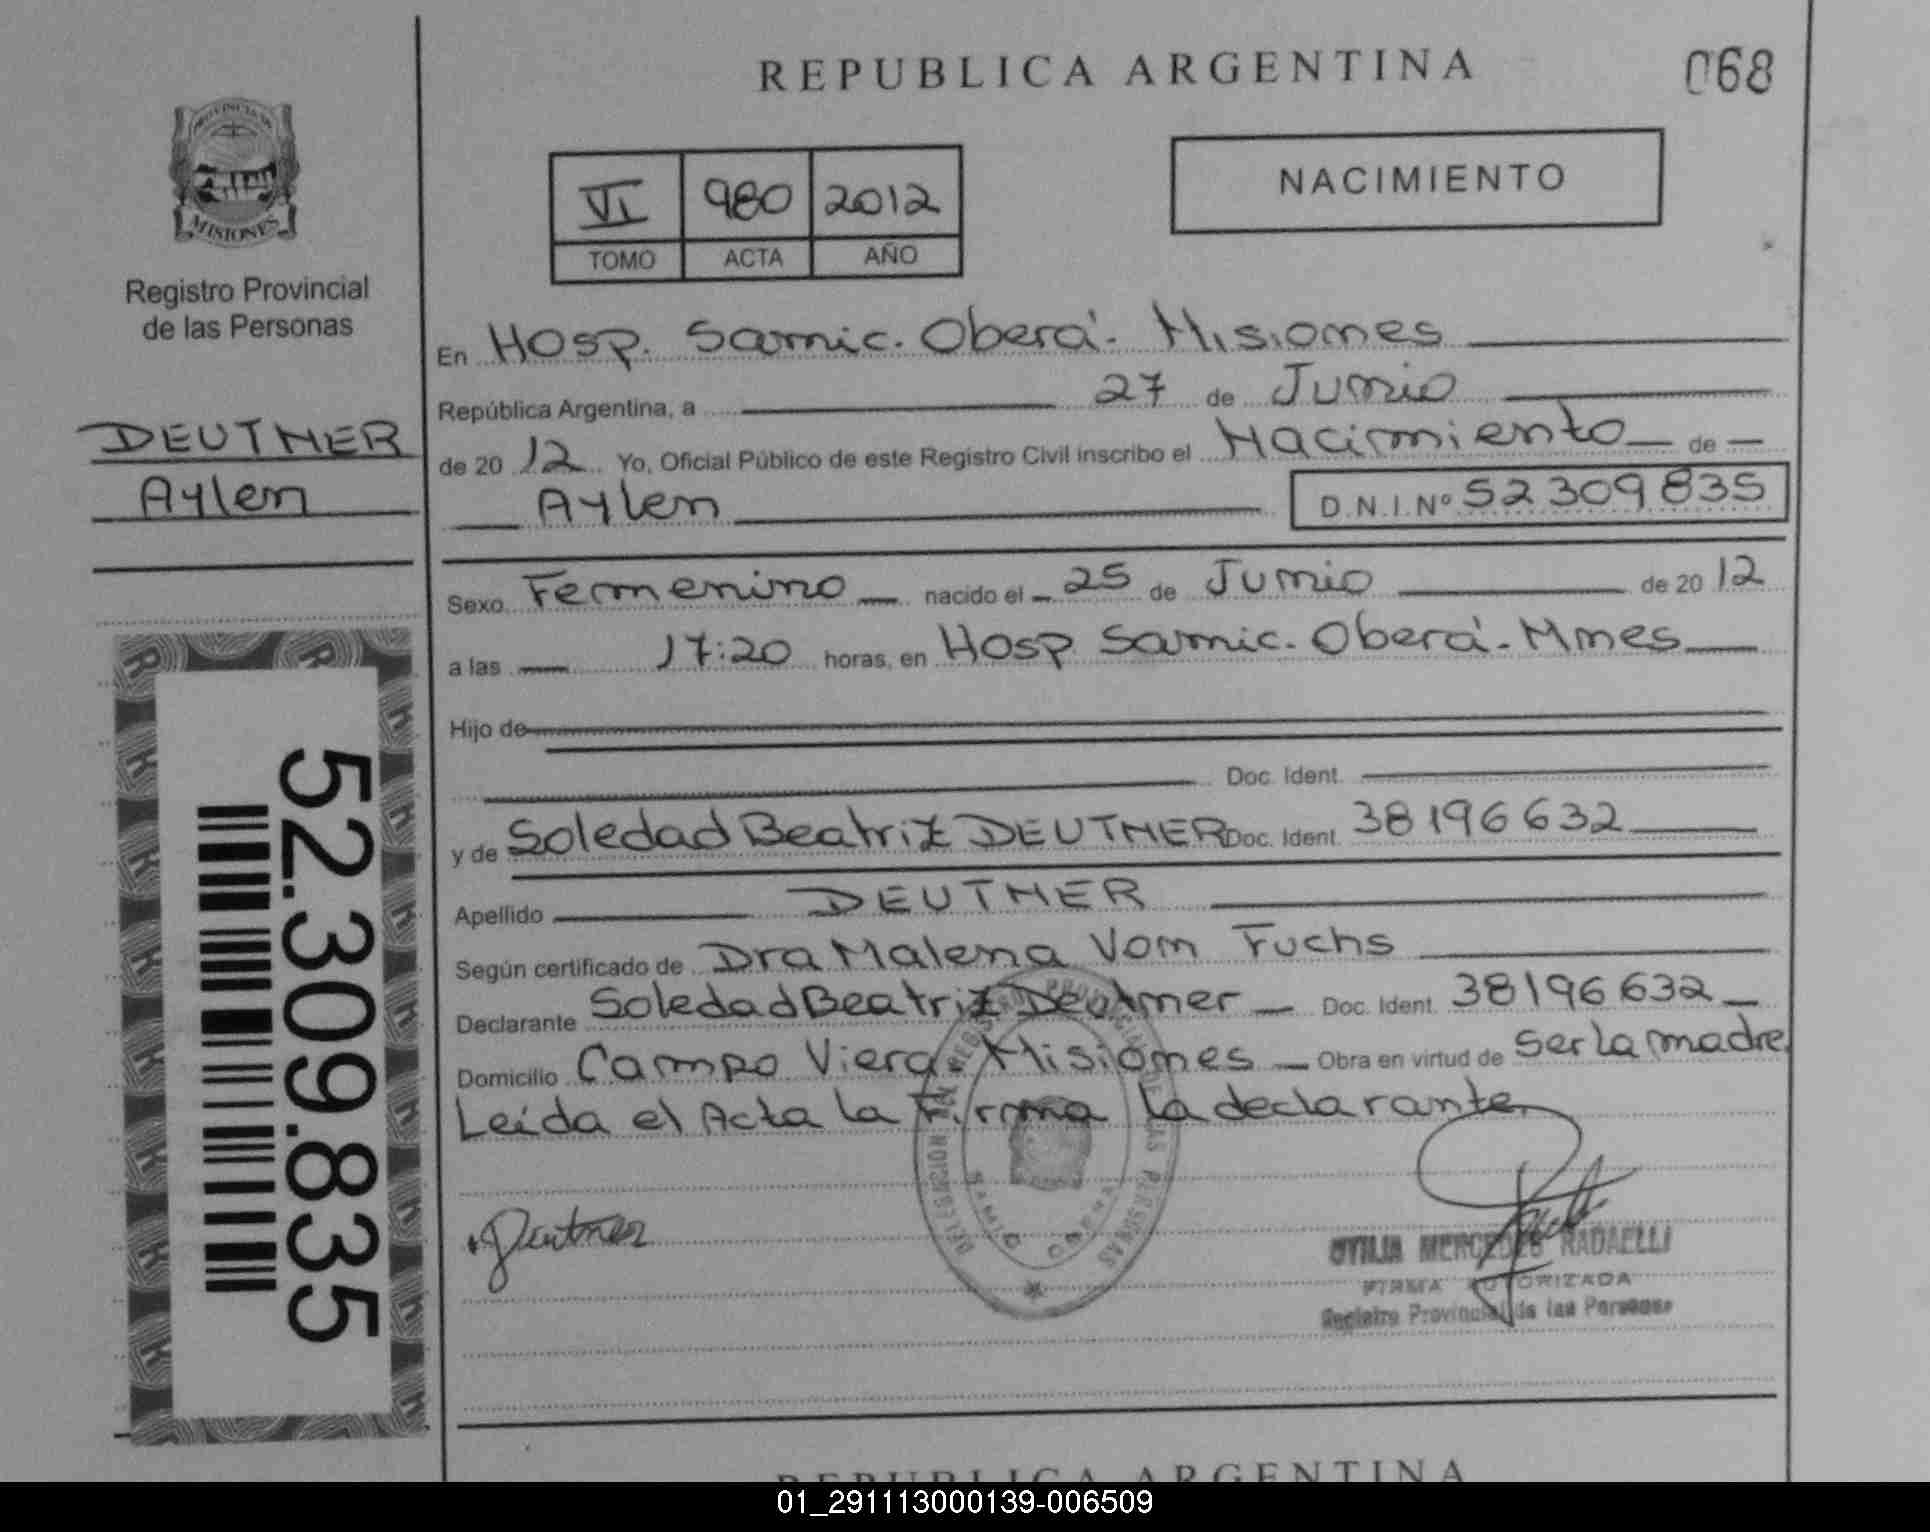 REPUBLICA ARGENTINA
068
PROVINCIA DE
MISIONES
Registro Provincial
de las Personas
VI 980 2012
TOMO ACTA AÑO
NACIMIENTO
DEUTNER
Aylen
52.309.835
En Hosp. Samic. Oberá. Misiones
República Argentina, a 27 de Junio
de 2012 Yo, Oficial Público de este Registro Civil inscribo el Nacimiento de
Aylen D.N.I.Nº 52309835
Sexo Femenino nacido el 25 de Junio de 2012
a las 17:20 horas, en Hosp Samic. Oberá. Mnes
Hijo de
Doc. Ident.
y de Soledad Beatriz DEUTNER Doc. Ident. 38196632
Apellido DEUTNER
Según certificado de Dra Malena Von Fuchs
Declarante Soledad Beatriz Deutner Doc. Ident. 38196632
Domicilio Campo Viera Misiones Obra en virtud de ser la madre
Leída el Acta la Firma la declarante
Deutner
REGISTRO PROVINCIAL DE LAS PERSONAS
DELEGACION
SAMIC OBERA
OTILIA MERCEDES RADAELLI
FIRMA AUTORIZADA
Registro Provincial de las Personas
REPUBLICA ARGENTINA
01_291113000139-006509